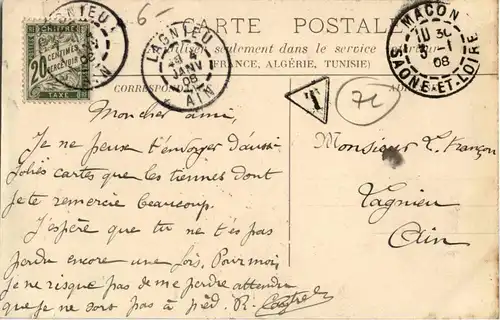 6-
CARTE POSTALE
seulement dans le service
(FRANCE, ALGÉRIE, TUNISIE)
CORRESPONDANCE
CHIFFRE
20 CENTIMES
À PERCEVOIR
TAXE
LAGNIEU
JANV
08
AIN
MACON
10 30
3 -1
08
SAONE-ET-LOIRE
T
72
Mon cher ami,
Je ne peux t'envoyer d'aussi
jolies cartes que les tiennes dont
je te remercie beaucoup.
J'espère que tu ne t'es pas
perdu encore une fois. Pour moi
je ne risque pas de me perdre attendu
que je ne sors pas à pied. R.
Monsieur L. Françon
Lagnieu
Ain